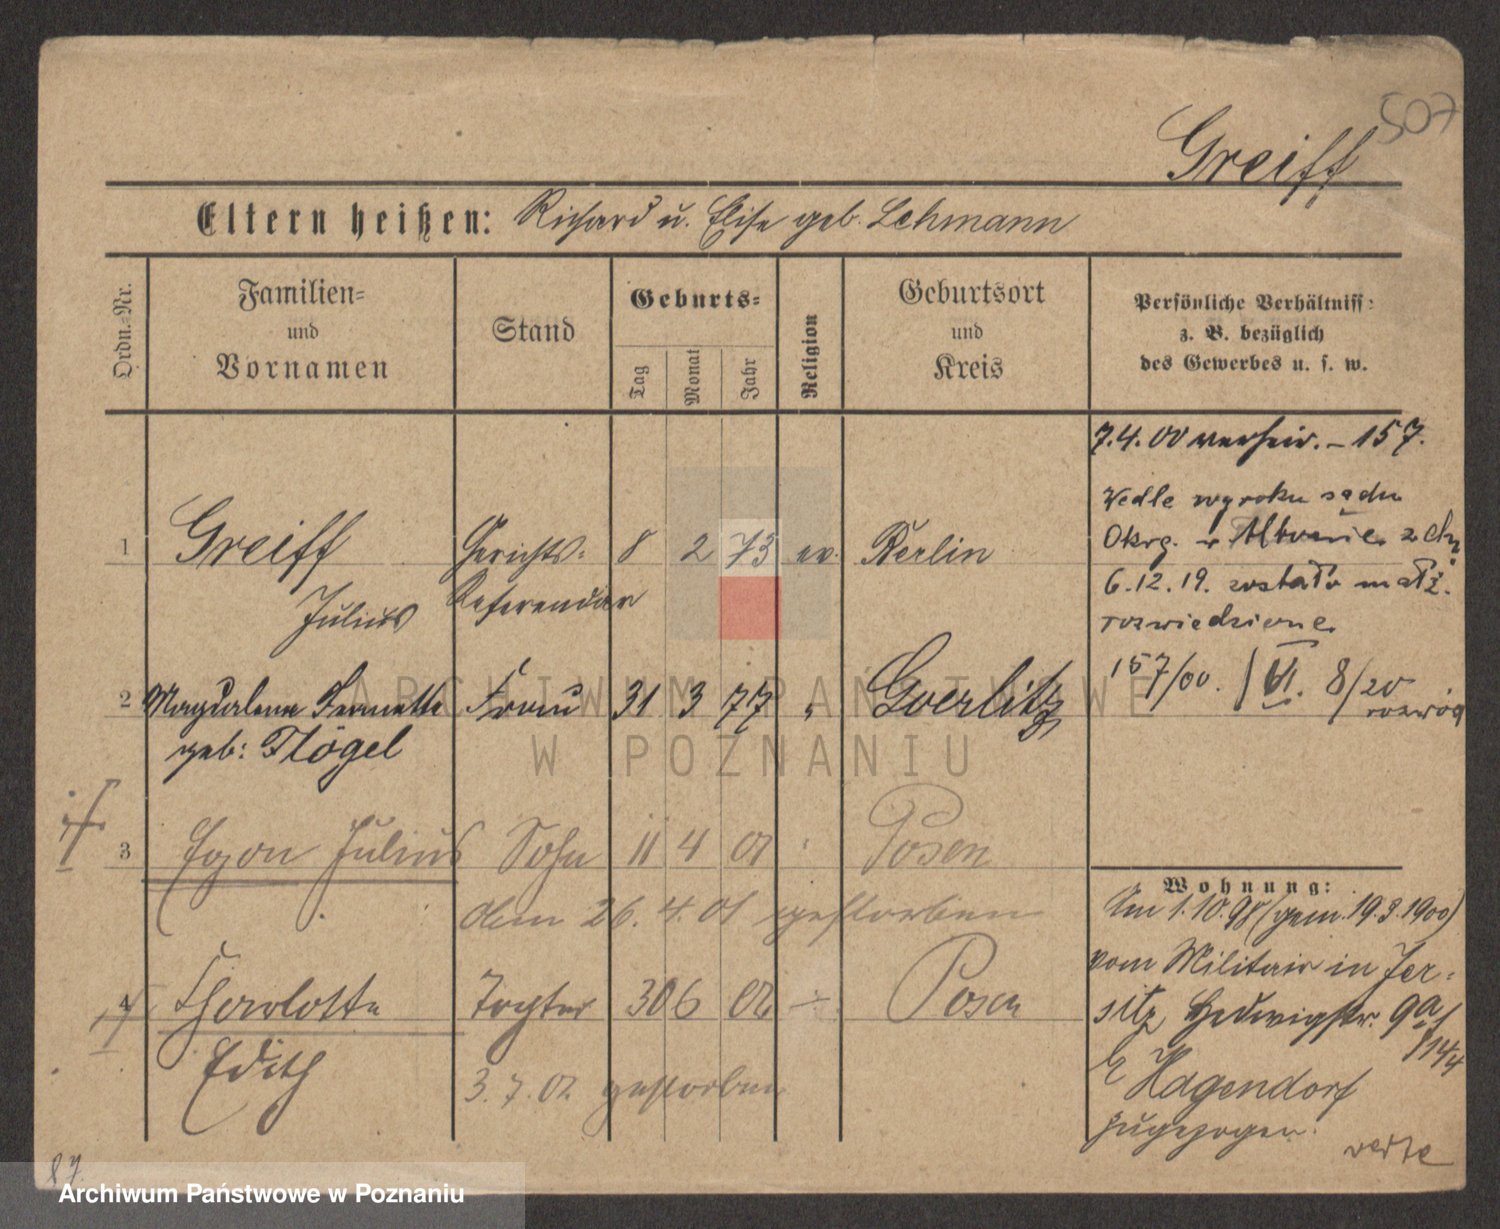 507
Greiff
Eltern heißen: Richard u. Elise geb. Lehmann
Ordn.-Nr.
Familien-
und
Vornamen
Stand
Geburts-
Tag
Monat
Jahr
Religion
Geburtsort
und
Kreis
Persönliche Verhältniss-
z. B. bezüglich
des Gewerbes u. s. w.
7.4.00 verheir. – 157.
Wedle wyroku sądu
Okrg. w Altonie z dn.
6.12.19. zostało małż.
rozwiedzione
157/00. VI. 8/20
rozwód
1 Greiff Gerichts- 8 2 73 ev. Berlin
Julius Referendar
2 Magdalena Jeanette Frau 31 3 77 " Goerlitz
geb: Flögel
3 Egon Julius Sohn 11 4 01 " Posen
dem 26. 4. 01 gestorben
4 Charlotte Tochter 30 6 02 Posen
Edith
3. 7. 02 gestorben
Wohnung:
Am 1.10.98 (gem. 19.3.1900)
vom Militair in Jer-
sitz Hedwigstr. 9a
14/4
Hagendorf
zugezogen.
verte
87.
ARCHIWUM PAŃSTWOWE
W POZNANIU
Archiwum Państwowe w Poznaniu